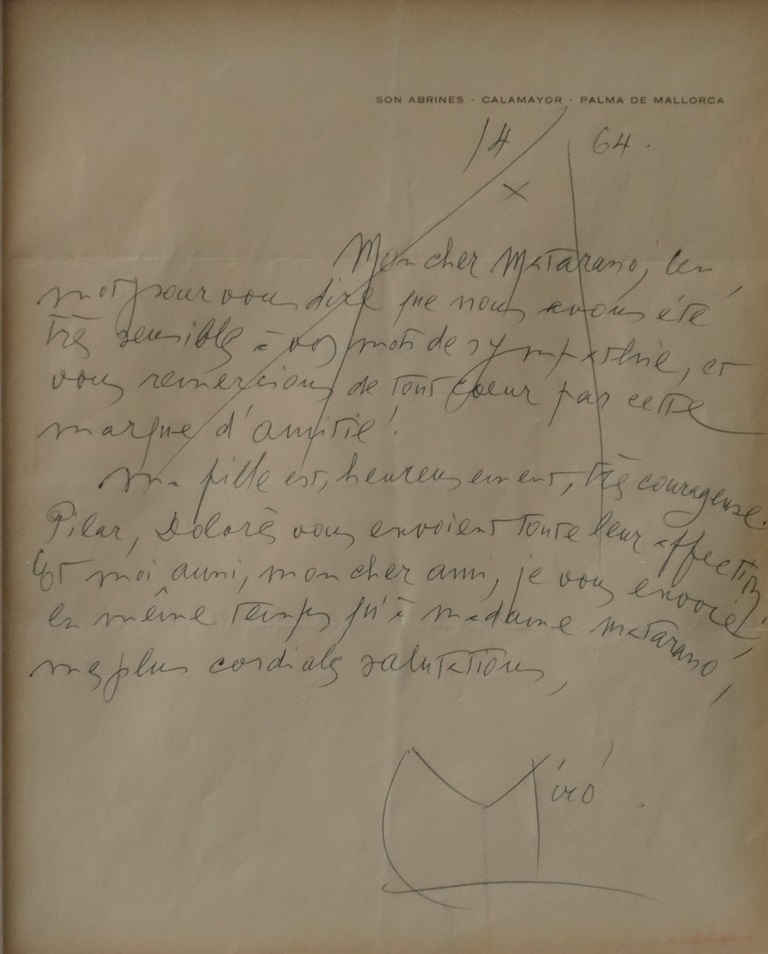 SON ABRINES · CALAMAYOR · PALMA DE MALLORCA
14 / X / 64.
Mon cher Matarasso, un
mot pour vous dire que nous avons été
très sensible à vos mots de sympathie, et
vous remercions de tout cœur par cette
marque d'amitié!
Ma fille est, heureusement, très courageuse.
Pilar, Dolorès vous envoient toute leur affection.
Et moi aussi, mon cher ami, je vous envoie,
en même temps qu'à madame Matarasso,
mes plus cordiales salutations,
Miró.